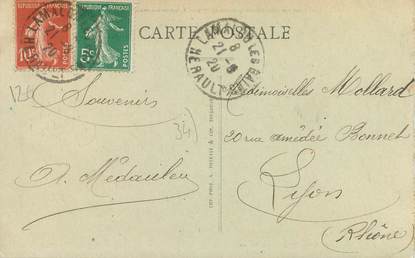 CARTE POSTALE
REPUBLIQUE FRANÇAISE
REPUBLIQUE FRANÇAISE
10c
5c
POSTES
POSTES
LAMALOU-LES-BAINS
21-8
20
HERAULT
126
Souvenirs
34
A. Médaulen
Mesdemoiselles Mollard
20 rue amédée Bonnet
Lyon
(Rhône)